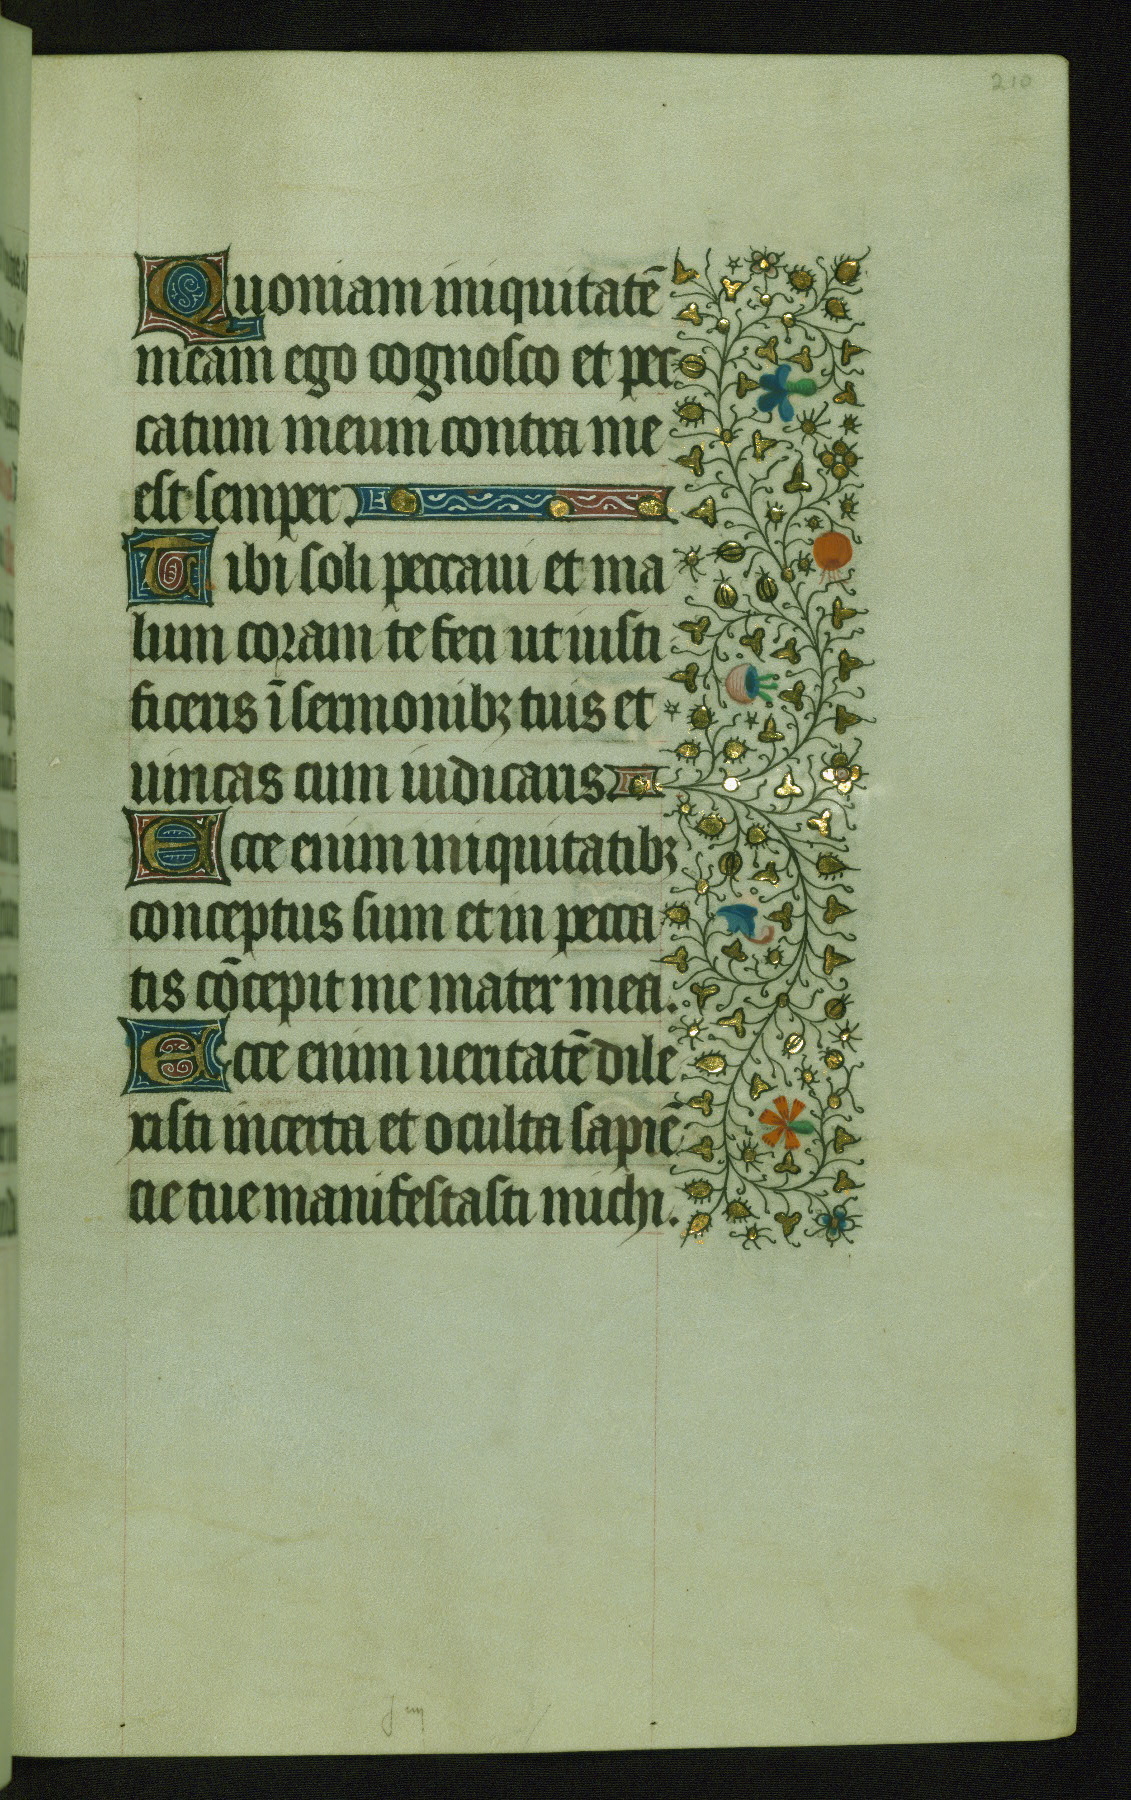 210
Quoniam iniquitatē
meam ego cognosco et pec
catum meum contra me
est semper.
Tibi soli peccaui et ma
lum coram te feci ut iusti
ficeris ī sermonibꝫ tuis et
uincas cum iudicaris
Ecce enim iniquitatibꝫ
conceptus sum et in pecca
tis cōcepit me mater mea.
Ecce enim ueritatē dile
xisti incerta et oculta sapiē
cie tue manifestasti michi.